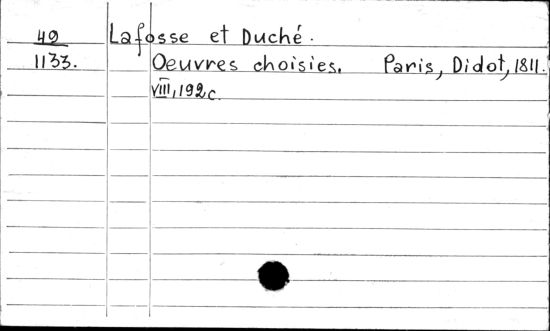 49 Lafosse et Duché.
1133. Oeuvres choisies. Paris, Didot, 1811.
VIII, 192 c.